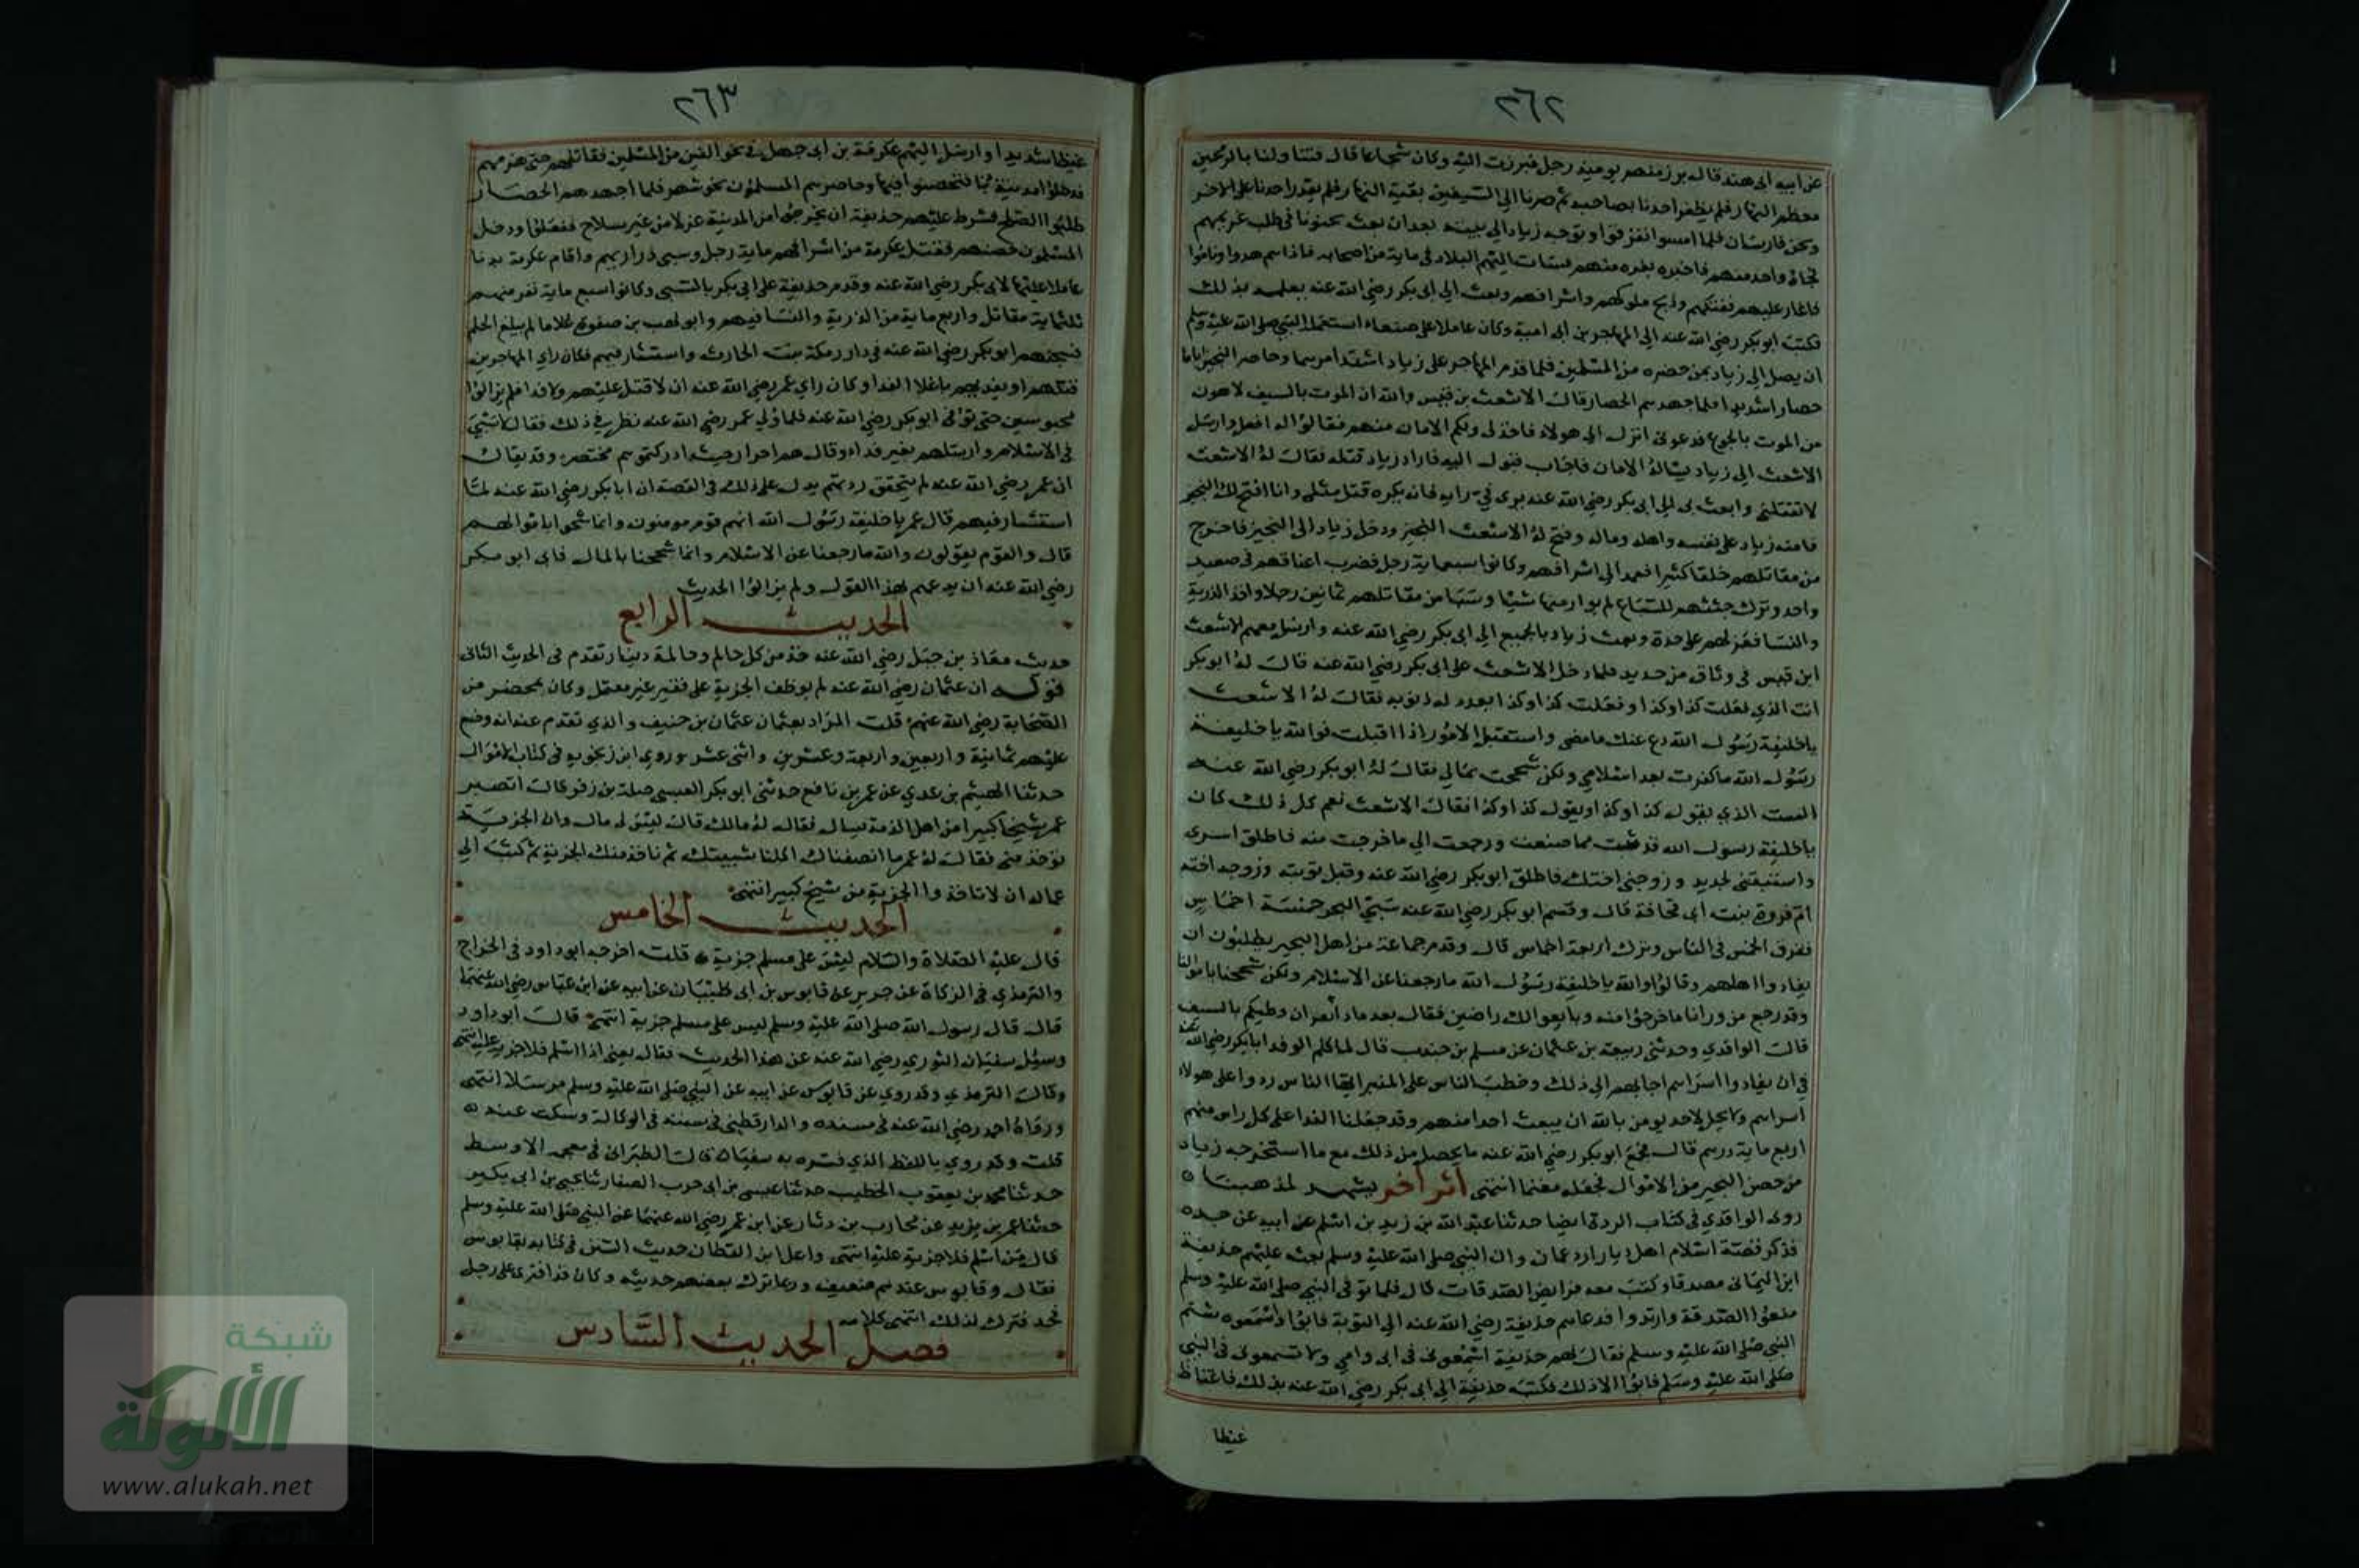 ٢٦٢
عن ابيه ابى هند قال برز منهم يوميذ رجل فبرزت اليه وكان شجاعا قال فتناولنا بالرمحين
معظم النهار فلم يظفر احدنا بصاحبه ثم صرنا الى السيفين بقية النهار فلم يقدر احدنا على الاخر
ونحن فارسان فلما امسوا تفرقوا وتوجه زياد الى بيته بعد ان بعث عيونا فى طلب غرتهم
فجاة واحد منهم فاخبره بغرة منهم فسات اليهم البلاد فى ماية من اصحابه فاذا هم هدوا وناموا
فاغار عليهم فقتلهم وذبح ملوكهم واشرافهم وبعث الى ابى بكر رضي الله عنه يعلمه بذلك
فكتب ابو بكر رضي الله عنه الى المهاجر بن ابى امية وكان عاملا على صنعاء استعمله النبي صلى الله عليه وسلم
ان يصل الى زياد بمن حضره من المسلمين فلما قدم المهاجر على زياد اشتد امرهما وحاصر النجير اياما
حصارا شديدا فلما جهدهم الحصار قال الاشعث بن قيس والله ان الموت بالسيف لاهون
من الموت بالجوع فدعونى انزل الى هولاء فاخذ لى ولكم الامان منهم فقالوا له افعل وارسل
الاشعث الى زياد يساله الامان فاجاب فنزل اليه فاراد زياد قتله فقال له الاشعث
لا تقتلنى وابعث بى الى ابى بكر رضي الله عنه يرى فيّ رايه فانه يكره قتل مثلى وانا افتح لك النجير
فامنه زياد على نفسه واهله وماله وفتح له الاشعث النجير ودخل زياد الى النجير فاخرج
من مقاتلهم خلقا كثيرا فعمد الى اشرافهم وكانوا سبعماية رجل فضرب اعناقهم فى صعيد
واحد وترك جثثهم للسباع لم يوار منها شيئا وسبا من مقاتلهم ثمانين رجلا واخذ الذرية
والنسا فعزلهم على حدة وبعث زياد بالجميع الى ابى بكر رضي الله عنه وارسل معهم الاشعث
ابن قيس فى وثاق من حديد فلما دخل الاشعث على ابى بكر رضي الله عنه قال له ابو بكر
انت الذي فعلت كذا وكذا وفعلت كذا وكذا يعدد له ذنوبه فقال له الاشعث
يا خليفة رسول الله دع عنك ما مضى واستقبل الامور اذا اقبلت فوالله يا خليفة
رسول الله ما كفرت بعد اسلامي ولكن شححت بمالي فقال له ابو بكر رضي الله عنه
الست الذي يقول كذا وكذا ويقول كذا وكذا فقال الاشعث نعم كل ذلك كان
يا خليفة رسول الله قد تبت مما صنعت ورجعت الى ما خرجت منه فاطلق اسرى
واستبقنى لحديد وزوجنى اختك فاطلق ابو بكر رضي الله عنه وقبل توبته وزوجه اخته
ام فروة بنت ابى قحافة قال وقسم ابو بكر رضي الله عنه سبي النجير خمسة اخماس
ففرق الخمس فى الناس وترك اربعة اخماس قال وقدم جماعة من اهل النجير يطلبون ان
يفادوا اهلهم وقالوا والله يا خليفة رسول الله ما رجعنا عن الاسلام ولكن شححنا باموالنا
وقد رجع من ورانا ما خرجوا منه وبايعوا لك راضين فقال بعد ماذا بعد ان وطيكم بالسيف
قال الواقدي وحدثنى ربيعة بن عثمان عن مسلم بن جندب قال لما كلم الوفد ابا بكر رضي الله عنه
في ان يفادوا اسراهم اجابهم الى ذلك وخطب الناس على المنبر ايها الناس ردوا على هولاء
اسراهم ولا يحل لاحد يومن بالله ان يبعث احدا منهم وقد جعلنا الفدا على كل راس منهم
اربع ماية درهم قال فجمع ابو بكر رضي الله عنه ما يحصل من ذلك مع ما استخرجه زياد
من حصن النجير من الاموال فجعله مغنما انتهى اثر اخر يشهد لمذهبنا
روى الواقدي فى كتاب الردة ايضا حدثنا عبد الله بن زيد بن اسلم عن ابيه عن جده
فذكر قصة اسلام اهل ديار ازد عمان وان النبي صلى الله عليه وسلم بعث عليهم حذيفة
ابن اليمانى مصدقا وكتب معه فرايض الصدقات قال فلما توفى النبي صلى الله عليه وسلم
منعوا الصدقة وارتدوا فدعاهم حذيفة رضي الله عنه الى التوبة فابوا واسمعوه شتم
النبي صلى الله عليه وسلم فقال لهم حذيفة اسمعونى فى ابى وامي ولا تسمعونى فى النبي
صلى الله عليه وسلم فابوا الا ذلك فكتب حذيفة الى ابى بكر رضي الله عنه بذلك فاغتاظ
غيظا
٢٦٣
غيظا شديدا وارسل اليهم عكرمة بن ابى جهل فى نحو الفين من المسلمين فقاتلهم حتى هزمهم
فدخلوا مدينة دبا فتحصنوا فيها وحاصرهم المسلمون نحو شهر فلما اجهدهم الحصار
طلبوا الصلح فشرط عليهم حذيفة ان يخرجوا من المدينة عزلا من غير سلاح ففعلوا ودخل
المسلمون حصنهم فقتل عكرمة من اشرافهم ماية رجل وسبى ذراريهم واقام عكرمة بدبا
عاملا عليها لابى بكر رضي الله عنه وقدم حذيفة على ابى بكر بالسبى وكانوا سبع ماية نفر منهم
ثلثماية مقاتل واربع ماية من الذرية والنسا فيهم وابو لهب بن صفوة غلاما لم يبلغ الحلم
فسجنهم ابو بكر رضي الله عنه فى دار رملة بنت الحارث واستشار فيهم فكان راي المهاجرين
قتلهم او يفديهم باغلا الفدا وكان راي عمر رضي الله عنه ان لا قتل عليهم ولا فدا فلم يزالوا
محبوسين حتى توفى ابو بكر رضي الله عنه فلما ولي عمر رضي الله عنه نظر في ذلك فقال لا سبي
فى الاسلام وارسلهم بغير فداء وقال هم احرار حيث ادركتموهم مختصر وقد يقال
ان عمر رضي الله عنه لم يتحقق ردتهم يدل على ذلك فى القصة ان ابا بكر رضي الله عنه لما
استشار فيهم قال عمر يا خليفة رسول الله انهم قوم مومنون وانما شحوا باموالهم
قال والقوم يقولون والله ما رجعنا عن الاسلام وانما شححنا بالمال فابى ابو بكر
رضي الله عنه ان يدعهم بهذا القول ولم يزالوا الحديث
الحديث الرابع
حديث معاذ بن جبل رضي الله عنه خذ من كل حالم وحالمة دينار تقدم فى الحديث الثانى
قوله ان عثمان رضي الله عنه لم يوظف الجزية على فقير غير معتمل وكان بمحضر من
الصحابة رضي الله عنهم قلت المراد بعثمان عثمان بن حنيف والذي تقدم عنه انه وضع
عليهم ثمانية واربعين واربعة وعشرين واثنى عشر وروي ابن زنجويه فى كتاب الاموال
حدثنا الهيثم بن عدي عن عمر بن نافع حدثنى ابو بكر العبسي صلة بن زفر قال ابصر
عمر شيخا كبيرا من اهل الذمة يسال فقال له مالك قال ليس لى مال وان الجزية
توخذ منى فقال له عمر ما انصفناك اكلنا شبيبتك ثم ناخذ منك الجزية ثم كتب الى
عماله ان لا تاخذوا الجزية من شيخ كبير انتهى
الحديث الخامس
قال عليه الصلاة والسلام ليس على مسلم جزية قلت اخرجه ابو داود فى الخراج
والترمذي فى الزكاة عن جرير عن قابوس بن ابى ظبيان عن ابيه عن ابن عباس رضي الله عنهما
قال قال رسول الله صلى الله عليه وسلم ليس على مسلم جزية انتهى قال ابو داود
وسيل سفيان الثوري رضي الله عنه عن هذا الحديث فقال يعنى اذا اسلم فلا جزية عليه انتهى
وقال الترمذي وقد روي عن قابوس عن ابيه عن النبي صلى الله عليه وسلم مرسلا انتهى
ورواه احمد رضي الله عنه فى مسنده والدارقطنى فى سننه فى الوكالة وسكت عنه
قلت وقد روي باللفظ الذي فسره به سفيان قال الطبرانى فى معجمه الاوسط
حدثنا محمد بن يعقوب الخطيب حدثنا عيسى بن ابى حرب الصفار ثنا يحيى بن ابى بكير
حدثنا عمر بن يزيد عن محارب بن دثار عن ابن عمر رضي الله عنهما عن النبي صلى الله عليه وسلم
قال من اسلم فلا جزية عليه انتهى واعل ابن القطان حديث السنن فى كتابه بقابوس
فقال وقابوس عندهم ضعيف وربما ترك بعضهم حديثه وكان قد افترى على رجل
فحد فترك لذلك انتهى كلامه
فصل الحديث السادس
شبكة
الألوكة
www.alukah.net